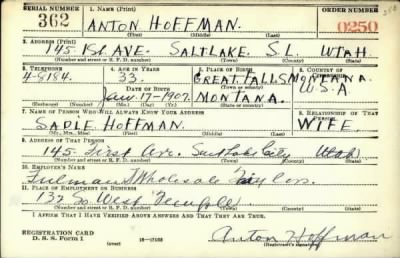 SERIAL NUMBER
362
1. NAME (Print)
ANTON HOFFMAN.
(First) (Middle) (Last)
ORDER NUMBER
O250
2. ADDRESS (Print)
145 1st AVE. SALTLAKE. S.L. UTAH
(Number and street or R. F. D. number) (Town) (County) (State)
3. TELEPHONE
4-8184
4. AGE IN YEARS
33.
DATE OF BIRTH
Jan. 17-1907.
(Mo.) (Day) (Yr.)
5. PLACE OF BIRTH
GREAT FALLS MONTANA.
(Town or county)
MONTANA.
(State or country)
6. COUNTRY OF CITIZENSHIP
U.S.A.
7. NAME OF PERSON WHO WILL ALWAYS KNOW YOUR ADDRESS
SADIE HOFFMAN.
(Mr., Mrs., Miss) (First) (Middle) (Last)
8. RELATIONSHIP OF THAT PERSON
WIFE
9. ADDRESS OF THAT PERSON
145 First Ave. Salt Lake City Utah
(Number and street or R. F. D. number) (Town) (County) (State)
10. EMPLOYER'S NAME
Wholesale Tailors.
11. PLACE OF EMPLOYMENT OR BUSINESS
132 So West Temple
(Number and street or R. F. D. number) (Town) (County) (State)
I AFFIRM THAT I HAVE VERIFIED ABOVE ANSWERS AND THAT THEY ARE TRUE.
REGISTRATION CARD
D. S. S. Form 1
(over)
Anton Hoffman
(Registrant's signature)